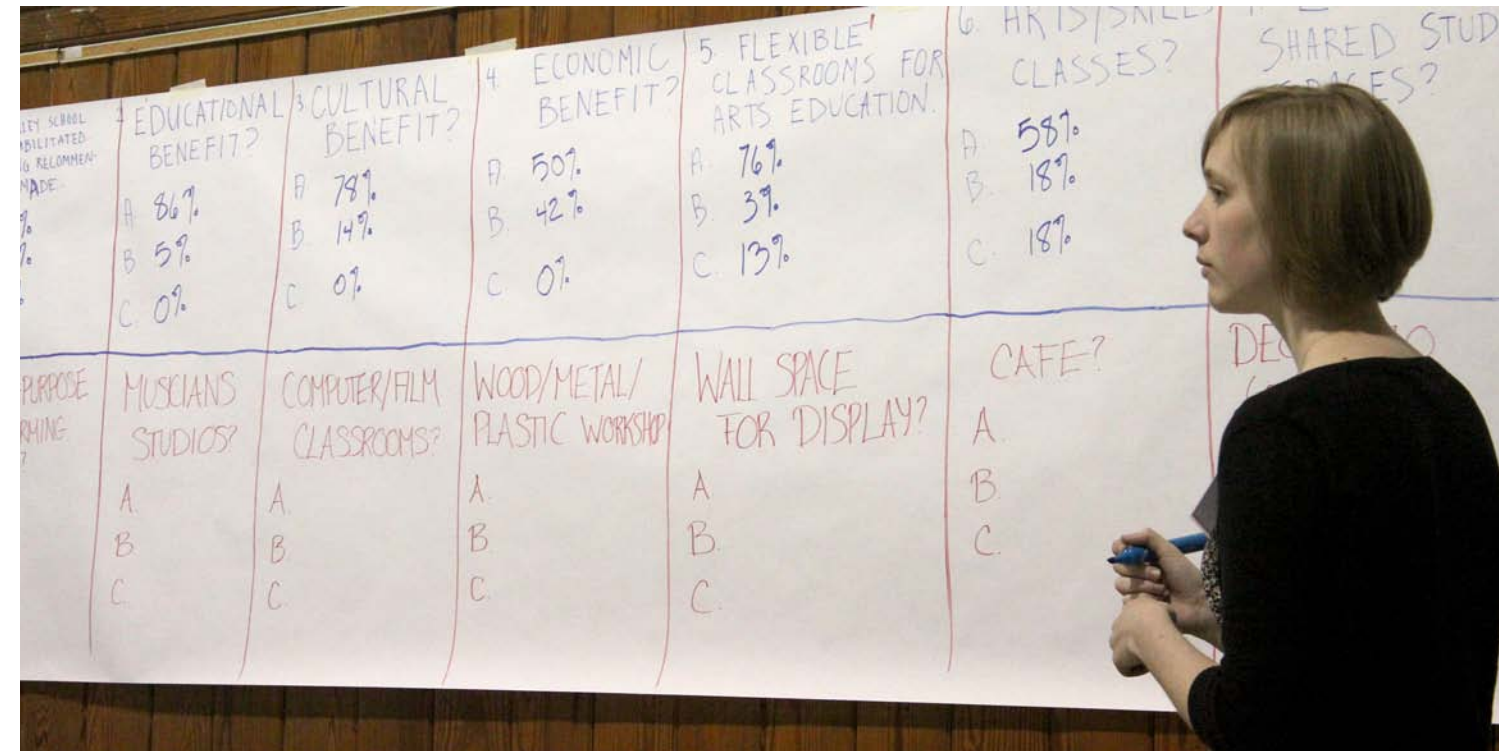 LEY SCHOOL
ABILITATED
G RECOMMEN-
MADE.
%
%
%
2 EDUCATIONAL
BENEFIT?
A 86%
B 5%
C. 0%
3. CULTURAL
BENEFIT?
A 78%
B 14%
C 0%
4. ECONOMIC
BENEFIT?
A. 50%
B. 42%
C 0%
5. FLEXIBLE
CLASSROOMS FOR
ARTS EDUCATION.
A 76%
B. 3%
C. 13%
6. ARTS/SKILLS
CLASSES?
A 58%
B. 18%
C. 18%
SHARED STUD
SPACES?
PURPOSE
RMING
?
MUSCIANS
STUDIOS?
A.
B.
C.
COMPUTER/FILM
CLASSROOMS?
A.
B.
C.
WOOD/METAL/
PLASTIC WORKSHOP
A.
B.
C.
WALL SPACE
FOR DISPLAY?
A
B.
C.
CAFE?
A.
B.
C.